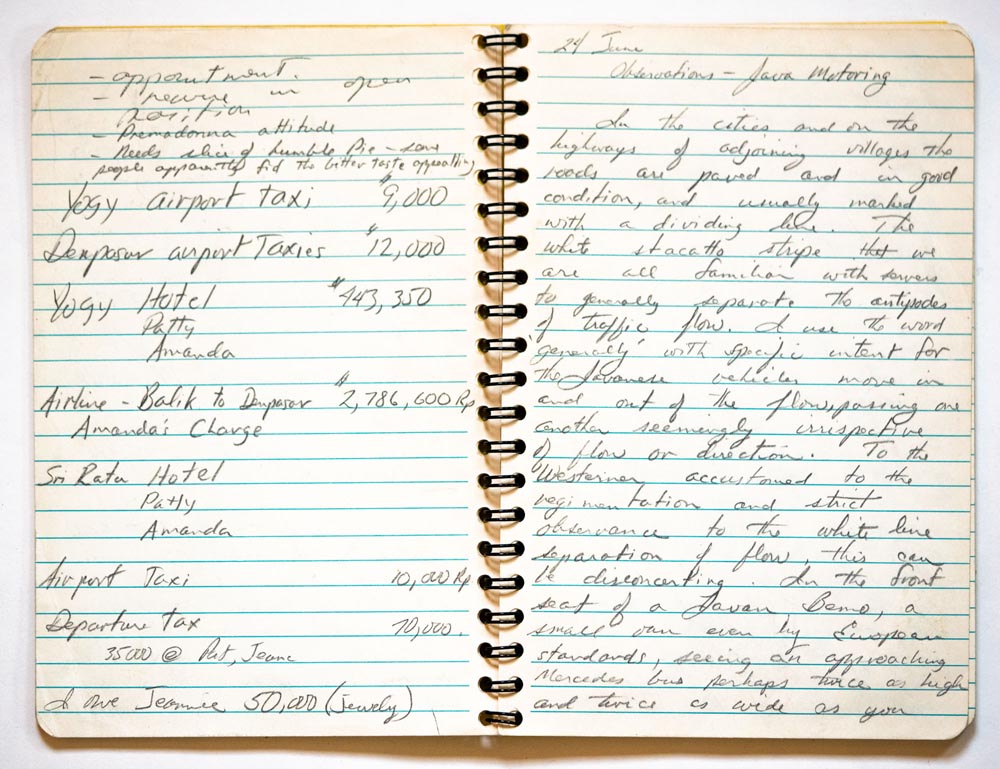 - appointment.
- recurve in open
position
- Premadonna attitude
- Needs slice of humble Pie - some
people apparently fid the bitter taste appealling.
Yogy airport taxi $9,000
Denpasar airport Taxies $12,000
Yogy Hotel $443,350
Patty
Amanda
Airline - Balik to Denpasar $2,786,600 Rp
Amanda's Charge
Sri Ratu Hotel
Patty
Amanda
Airport Taxi 10,000 Rp
Departure Tax 70,000.
35000 @ Pat, Jeane
I owe Jeannie 50,000 (jewely)
24 June
Observations - Java Motoring
In the cities and on the
highways of adjoining villages the
roads are paved and in good
condition, and usually marked
with a dividing line. The
white stacatto stripe that we
are all familiar with servers
to generally separate the antipodes
of traffic flow. I use the word
'generally' with specific intent for
the Javanese vehicles move in
and out of the flow, passing one
another seemingly irrispective
of flow or direction. To the
Westerner, accustomed to the
regimentation and strict
observance to the white line
separation of flow, this can
be disconcerting. In the front
seat of a Javan Bemo, a
small van even by European
standards, seeing an approaching
Mercedes bus perhaps twice as high
and twice as wide as you